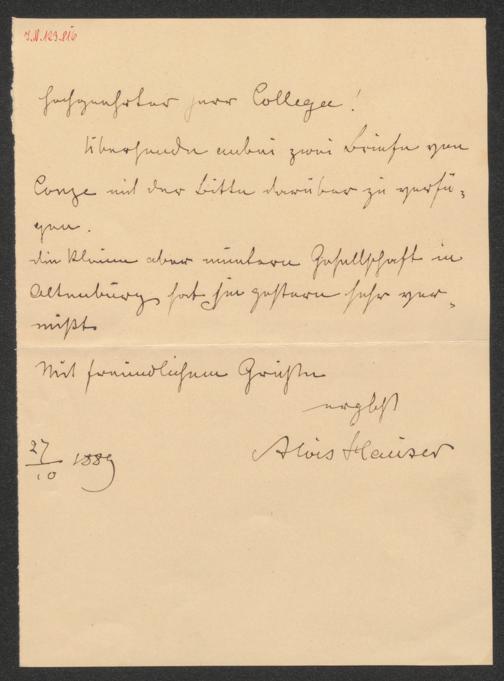 I.N. 123.816
Hochgeehrter Herr College!
Übersende anbei zwei Briefe von
Conze mit der Bitte darüber zu verfü-
gen.
Die kleine aber muntere Gesellschaft in
Altenburg hat Sie gestern sehr ver-
mißt.
Mit freundlichem Gruße
ergbst
Alois Hauser
27/10 1889